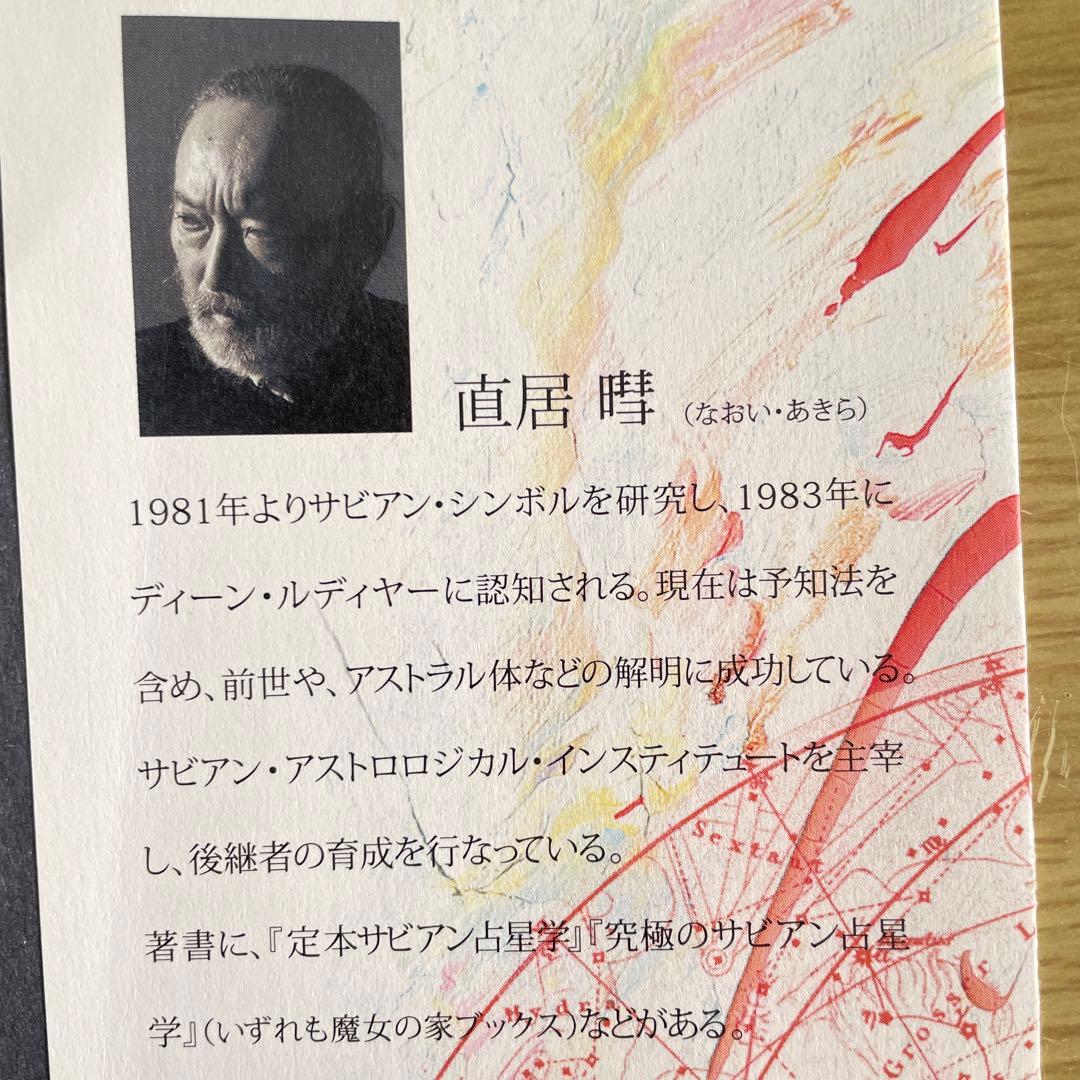 直居 暳 (なおい・あきら)
1981年よりサビアン・シンボルを研究し、1983年に
ディーン・ルディヤーに認知される。現在は予知法を
含め、前世や、アストラル体などの解明に成功している。
サビアン・アストロロジカル・インスティテュートを主宰
し、後継者の育成を行なっている。
著書に、『定本サビアン占星学』『究極のサビアン占星
学』(いずれも魔女の家ブックス)などがある。
Sextans
Hydra